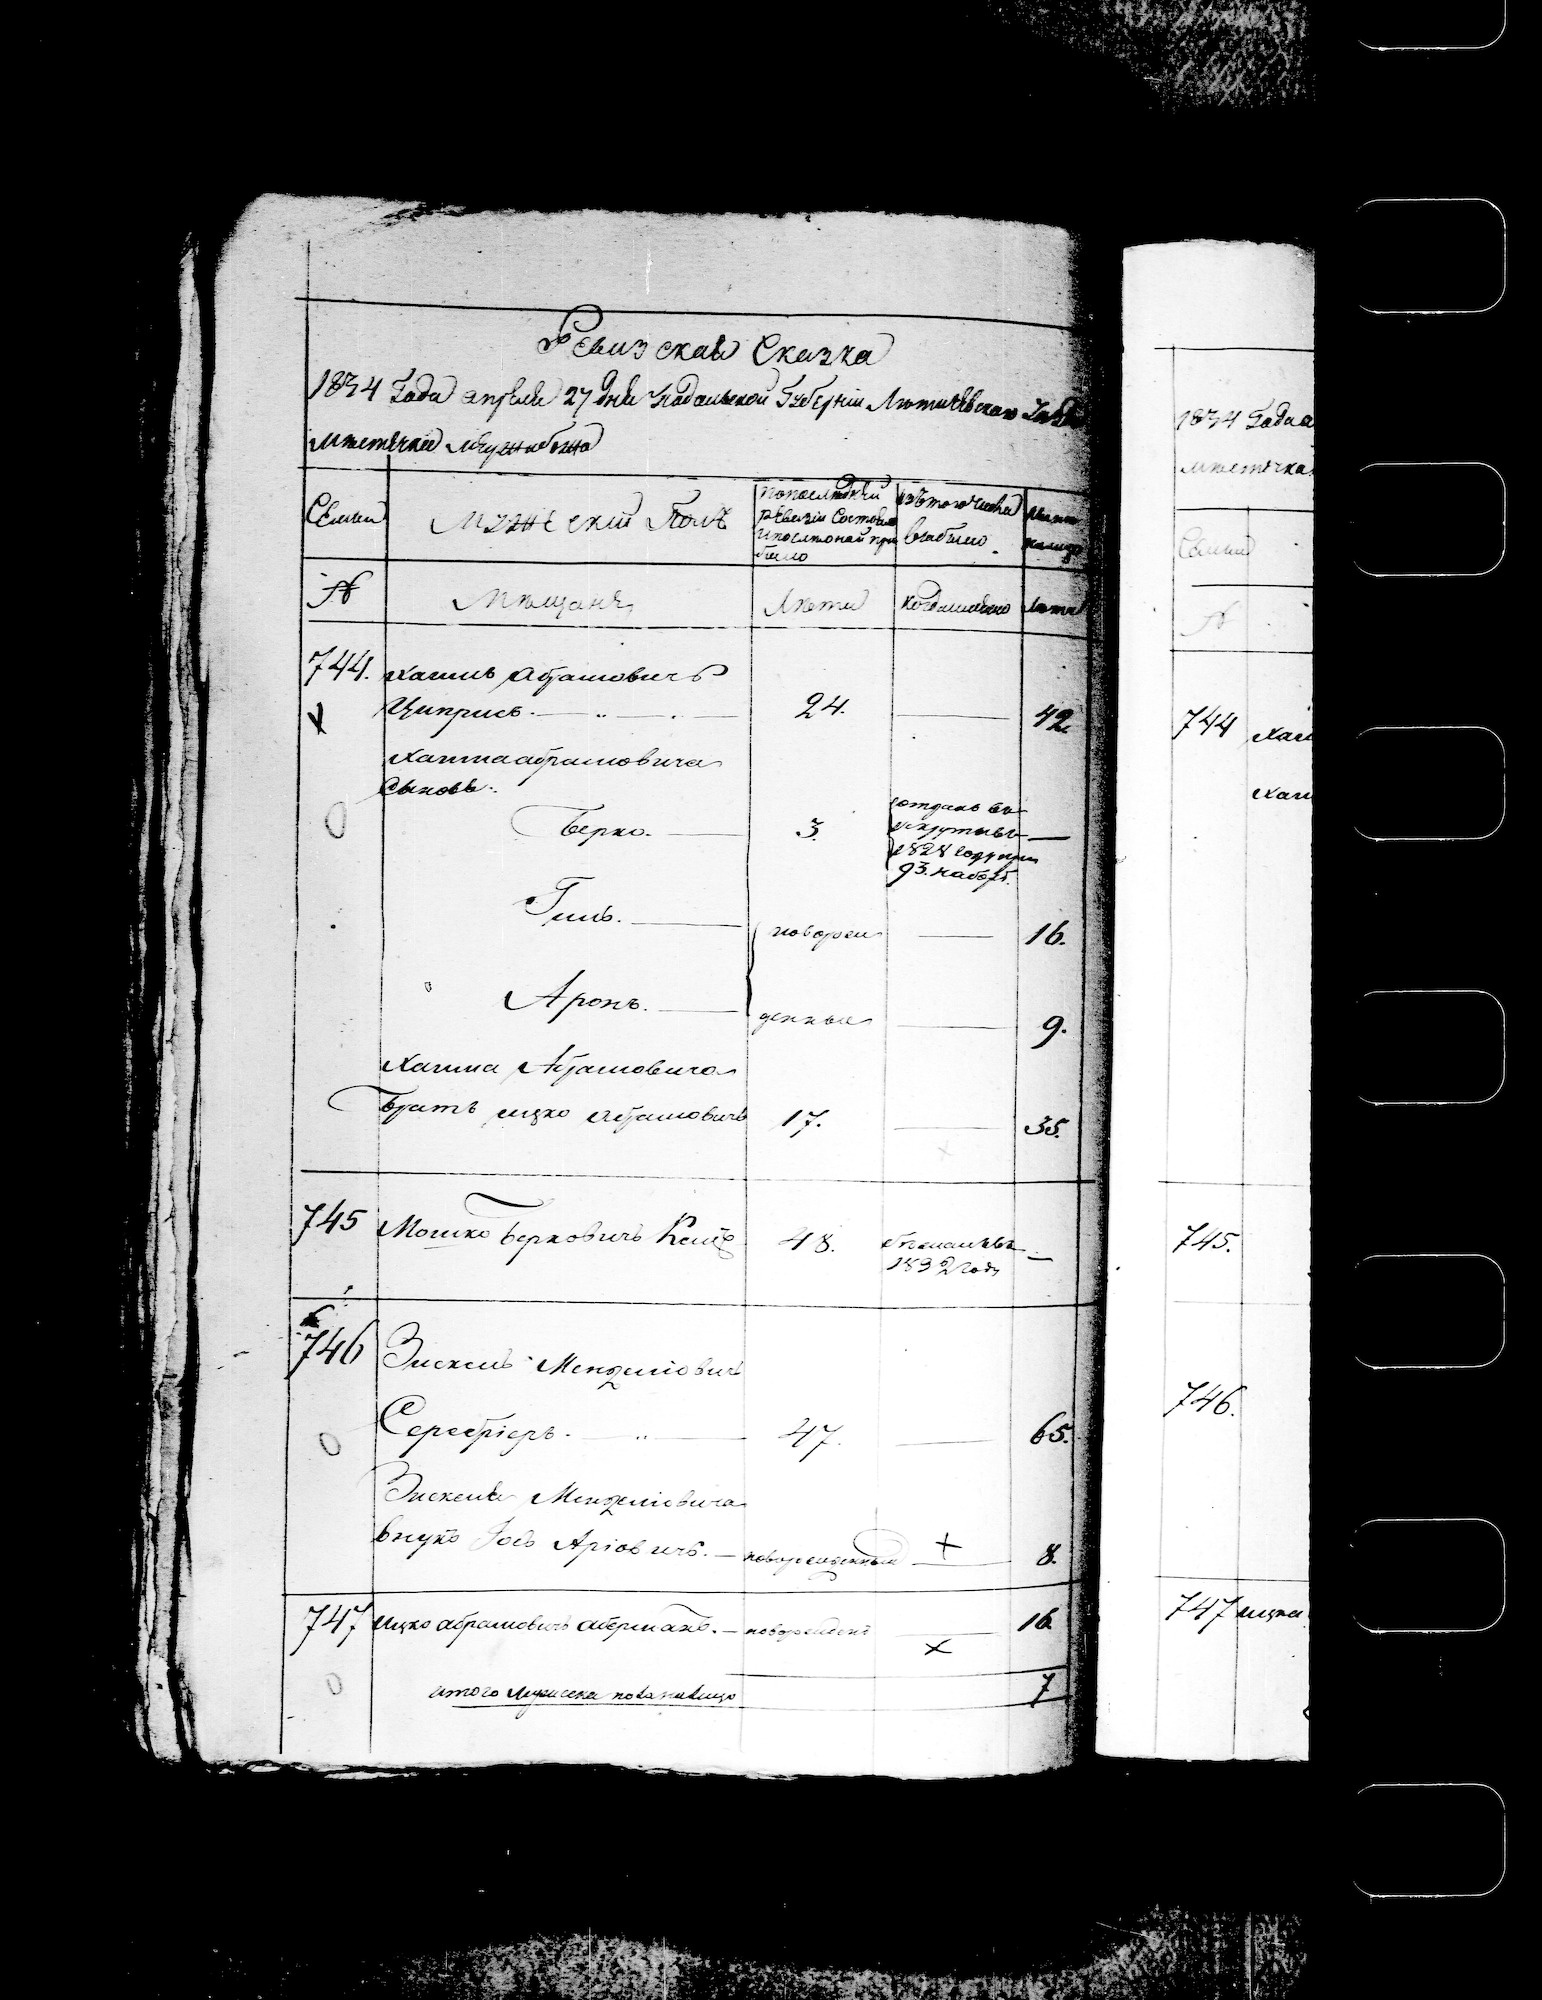 Ревизская Сказка
1834 Года апреля 27 дня Подольской Губернии Летичевского
местечка Межибожа
Семьи
Мужеский Полъ
по последней
ревизии состояло
и после оной при
было
изъ того числа
выбыло
№
Мещане
Лета
когда именно
Лета
744.
Хаимъ Абрамовичъ
Циприсъ.
24.
42
Хаима Абрамовича
сыновья.
Берко.
3.
отданъ въ
рекруты въ
1828 году при
93. наборе.
Гиль.
новорож
16.
Аронъ.
денные
9.
Хаима Абрамовича
братъ Ицко Абрамовичъ
17.
35.
745
Мошко Берковичъ
48.
1832 года
746
Менделiовичъ
47.
65.
Менделiовича
внукъ Iось Арiовичъ.
новорожденный
8.
747
Ицко Абрамовичъ
новорожденъ
16
итого мужеска пола налицо
7
1834 Года а
местечка
Семьи
№
744
Хаи
Хаи
745.
746.
747
Ицка